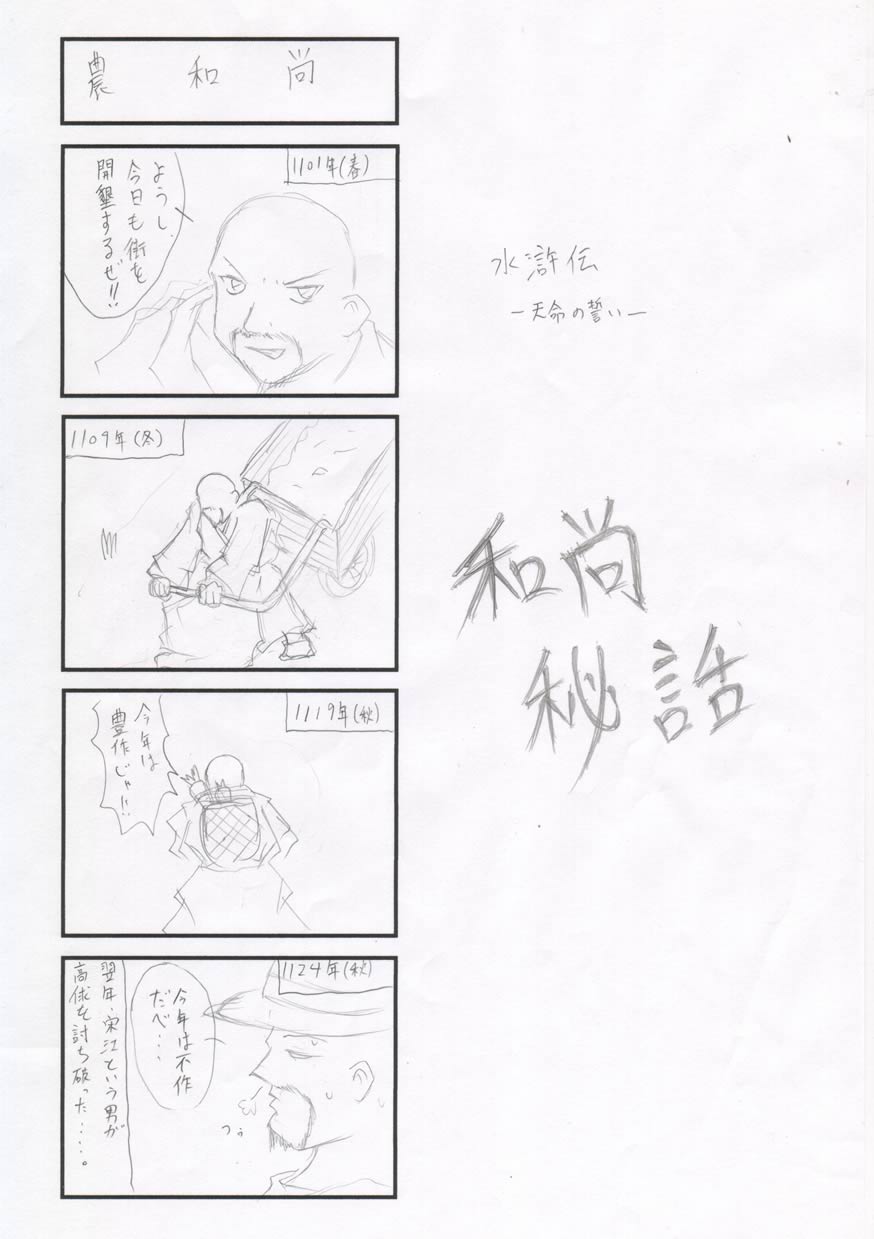 農和尚
1101年(春)
ようし、
今日も街を
開墾するぜ!!
1109年(冬)
1119年(秋)
今年は
豊作じゃ!!
1124年(秋)
今年は不作
だべ・・・
つぅ
翌年、宋江という男が
高俅を討ち破った・・・・。
水滸伝
ー天命の誓いー
和尚
秘話